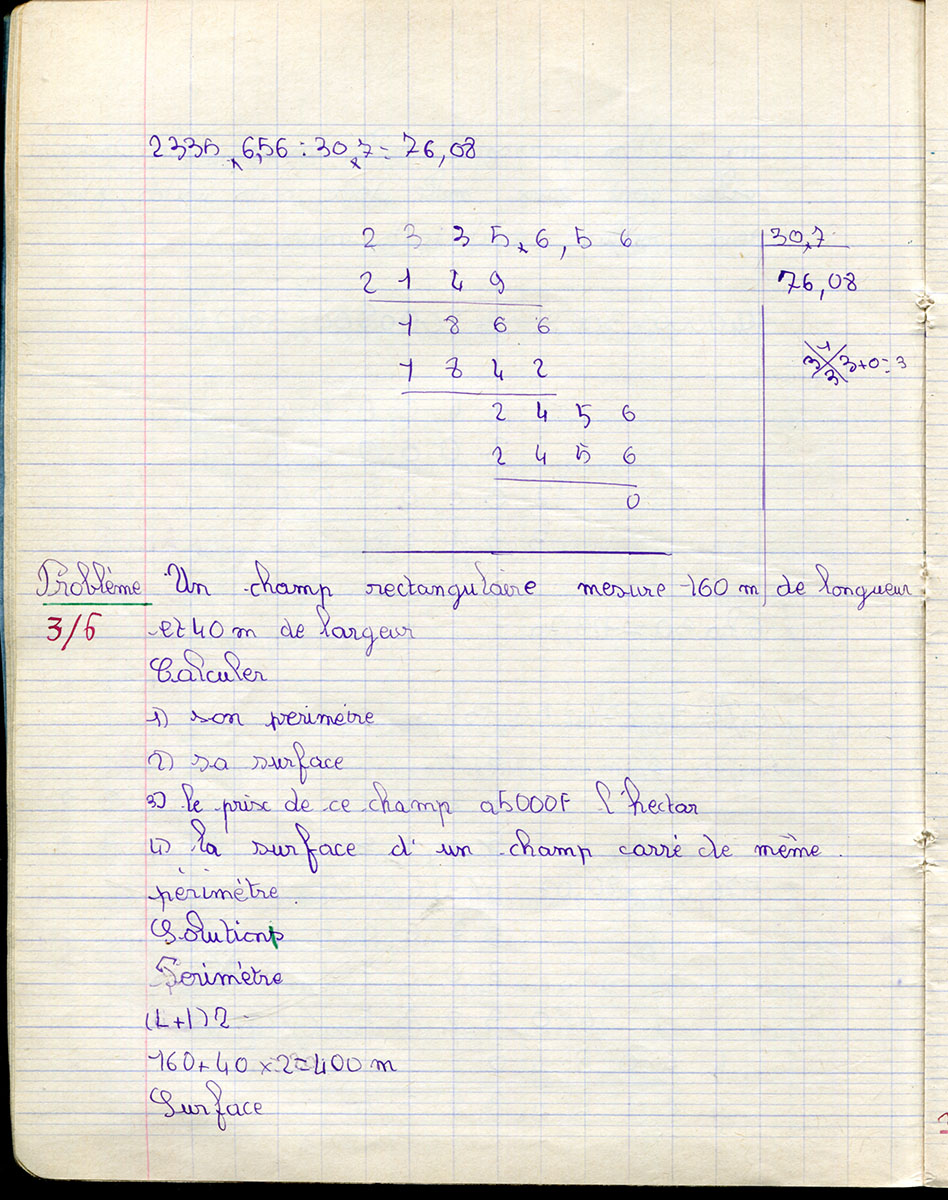 2335,6,56 : 30,7 = 76,08
2 3 3 5,6,5 6
30,7
2 1 4 9
76,08
1 8 6 6
1
3 3 3+0=3
3
1 8 4 2
2 4 5 6
2 4 5 6
0
Problème Un champ rectangulaire mesure 160 m de longueur
3/5 et 40 m de largeur
Calculer
1) son perimètre
2) sa surface
3) le prix de ce champ a 5000F l'hectar
4) la surface d'un champ carré de même
périmètre.
Solution
Perimètre
(L+l)2
160+40×2=400 m
Surface